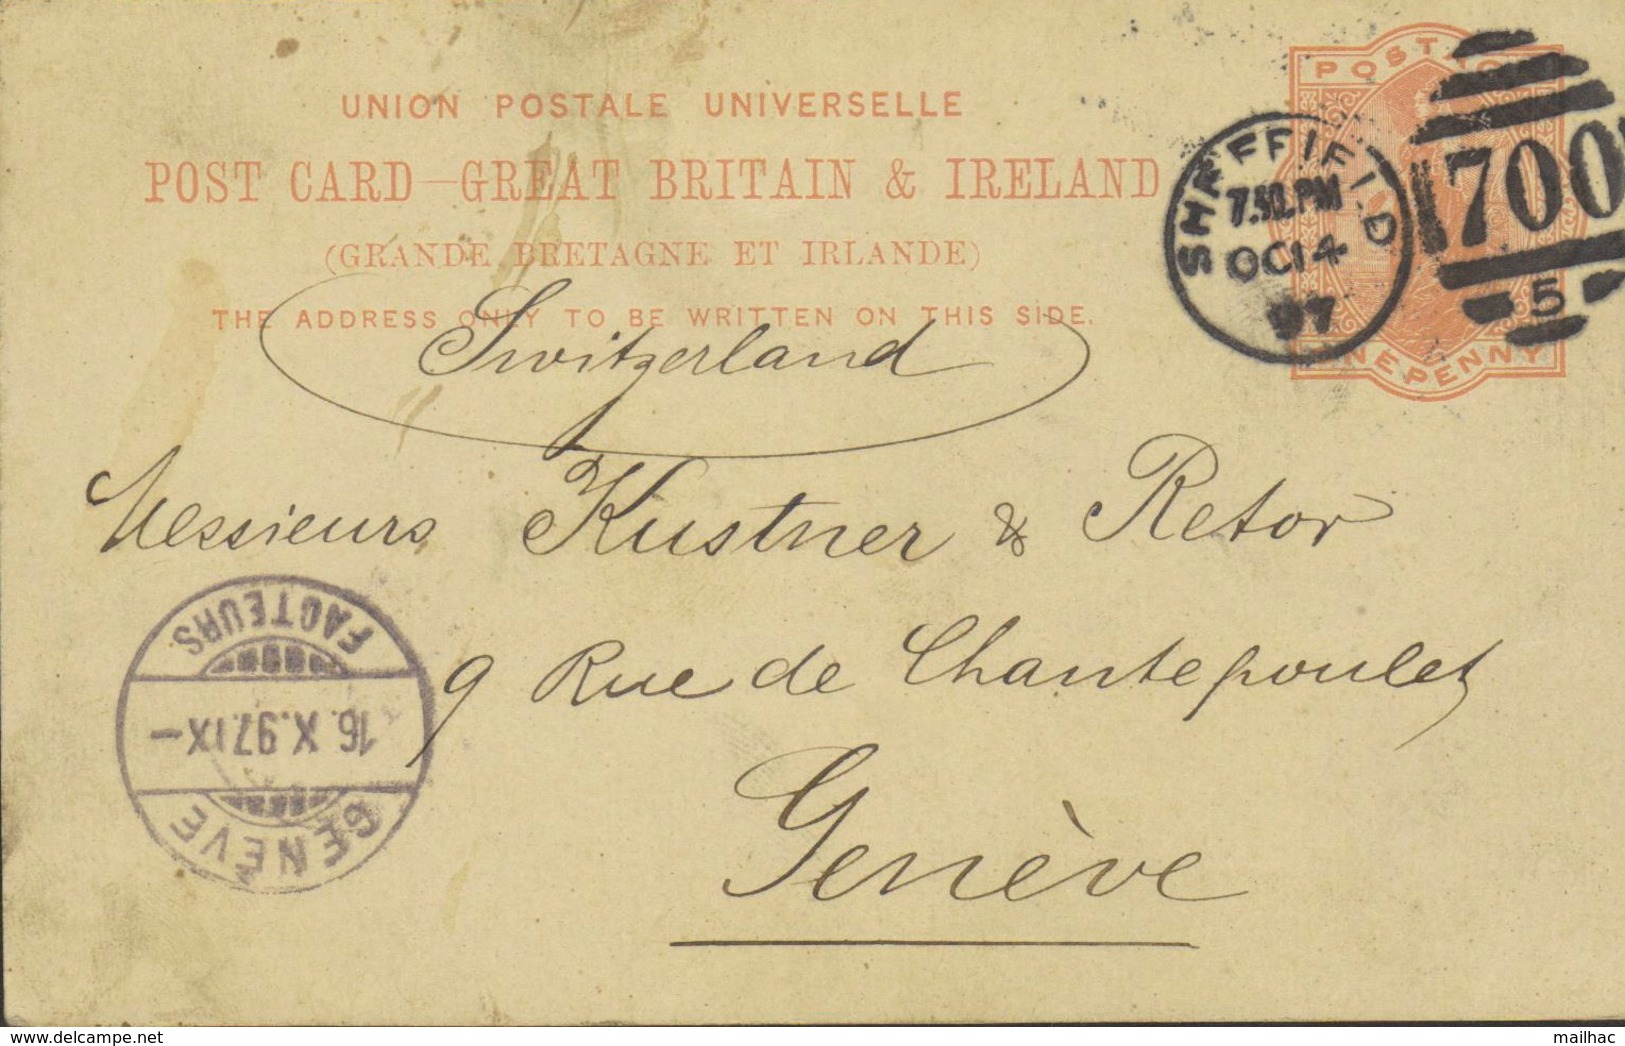 UNION POSTALE UNIVERSELLE
POST CARD—GREAT BRITAIN & IRELAND
(GRANDE BRETAGNE ET IRLANDE)
THE ADDRESS ONLY TO BE WRITTEN ON THIS SIDE.
SHEFFIELD
7.30.PM
OC14
97
700
5
ONE PENNY
Switzerland
Messieurs Kustner & Retor
9 Rue de Chantepoulet
Genève
GENÈVE
16.X.97.IX—
FACTEURS
www.delcampe.net
mailhac